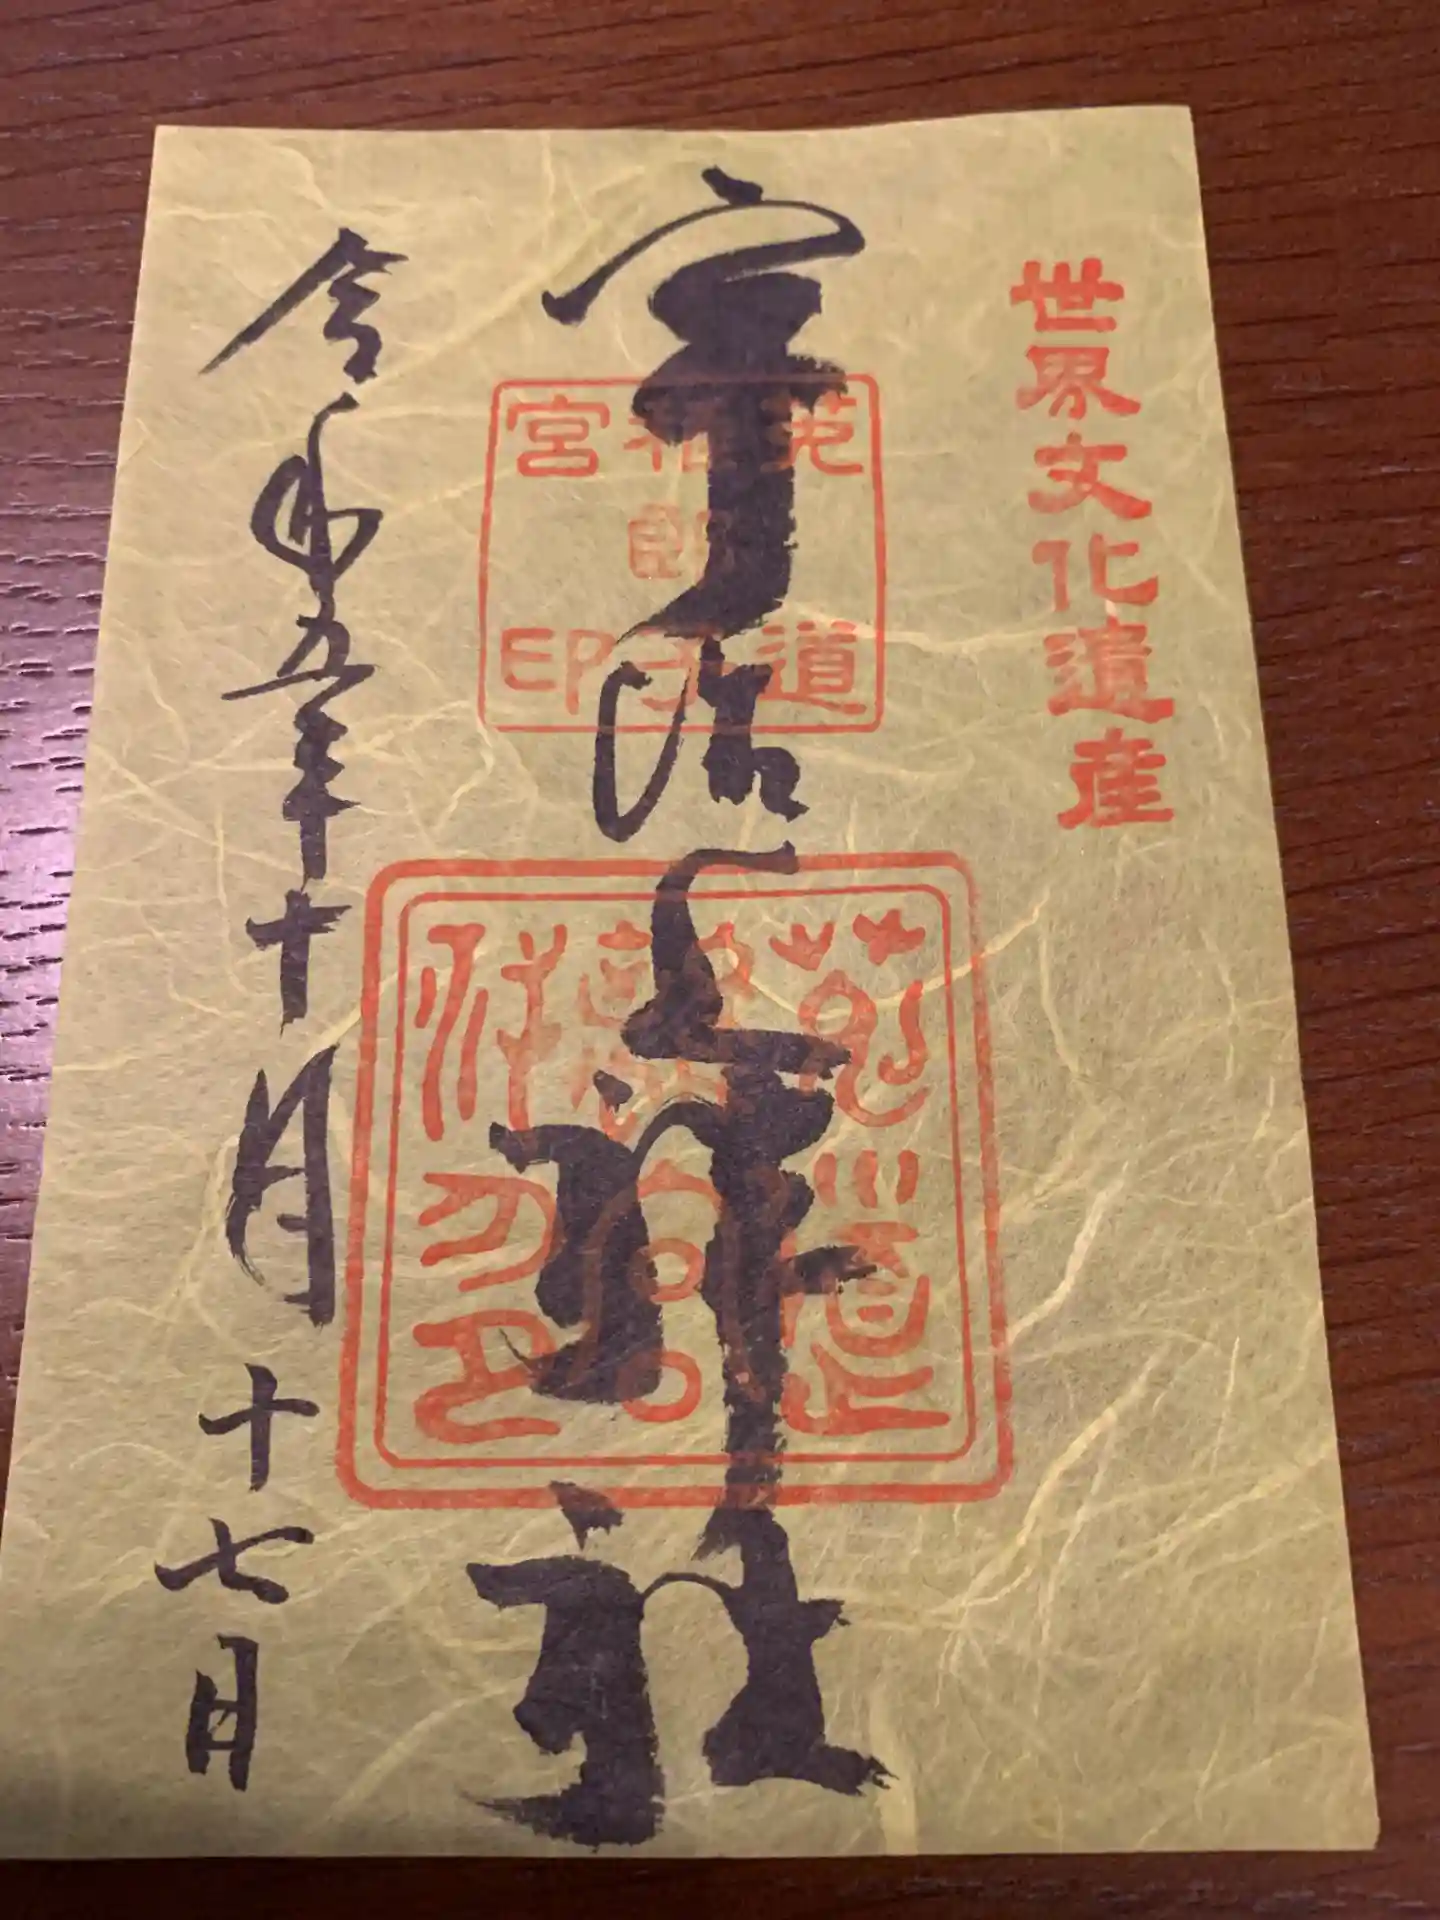 世界文化遺産
宇治上神社
菟道
稚郎子
宮印
令和五年十月十七日